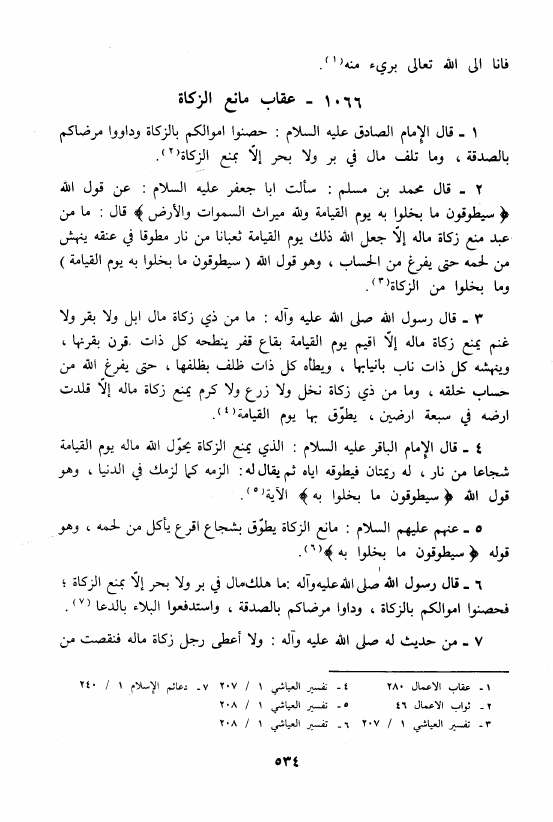 فانا الى الله تعالى بريء منه(١).
١٠٦٦ - عقاب مانع الزكاة
١ - قال الإمام الصادق عليه السلام : حصنوا اموالكم بالزكاة وداووا مرضاكم
بالصدقة ، وما تلف مال في بر ولا بحر إلّا بمنع الزكاة(٢).
٢ - قال محمد بن مسلم : سألت ابا جعفر عليه السلام : عن قول الله
﴿ سيطوقون ما بخلوا به يوم القيامة ولله ميراث السموات والأرض ﴾ قال : ما من
عبد منع زكاة ماله إلّا جعل الله ذلك يوم القيامة ثعبانا من نار مطوقا في عنقه ينهش
من لحمه حتى يفرغ من الحساب ، وهو قول الله ( سيطوقون ما بخلوا به يوم القيامة )
وما بخلوا من الزكاة(٣).
٣ - قال رسول الله صلى الله عليه وآله : ما من ذي زكاة مال ابل ولا بقر ولا
غنم يمنع زكاة ماله إلّا اقيم يوم القيامة بقاع قفر ينطحه كل ذات قرن بقرنها ،
وينهشه كل ذات ناب بانيابها ، ويطأه كل ذات ظلف بظلفها ، حتى يفرغ الله من
حساب خلقه ، وما من ذي زكاة نخل ولا زرع ولا كرم يمنع زكاة ماله إلّا قلدت
ارضه في سبعة ارضين ، يطوّق بها يوم القيامة(٤).
٤ - قال الإمام الباقر عليه السلام : الذي يمنع الزكاة يحوّل الله ماله يوم القيامة
شجاعا من نار ، له ريمتان فيطوقه اياه ثم يقال له : الزمه كما لزمك في الدنيا ، وهو
قول الله ﴿ سيطوقون ما بخلوا به ﴾ الآية(٥).
٥ - عنهم عليهم السلام : مانع الزكاة يطوّق بشجاع اقرع يأكل من لحمه ، وهو
قوله ﴿ سيطوقون ما بخلوا به ﴾(٦).
٦ - قال رسول الله صلى الله عليه وآله : ما هلك مال في بر ولا بحر إلّا بمنع الزكاة ؛
فحصنوا اموالكم بالزكاة ، وداوا مرضاكم بالصدقة ، واستدفعوا البلاء بالدعا(٧).
٧ - من حديث له صلى الله عليه وآله : ولا أعطى رجل زكاة ماله فنقصت من
١ - عقاب الاعمال ٢٨٠ ٤ - تفسير العياشي ١ / ٢٠٧ ٧ - دعائم الإسلام ١ / ٢٤٠
٢ - ثواب الاعمال ٤٦ ٥ - تفسير العياشي ١ / ٢٠٨
٣ - تفسير العياشي ١ / ٢٠٧ ٦ - تفسير العياشي ١ / ٢٠٨
٥٣٤